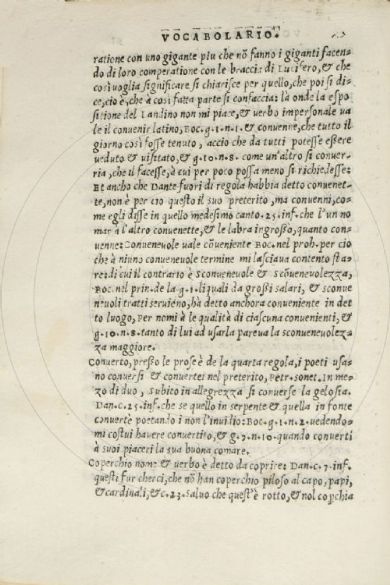 VOCABOLARIO.
ratione con uno gigante piu che nõ fanno i giganti facen
do di loro comperatione con le braccia di Lucifero, & che
cosi voglia significare si chiarisce per quello, che poi si di=
ce, cio è, che à cosi fatta parte si confaccia: là onde la espo
sitione del Landino non mi piace, & è verbo impersonale va
le il convenir latino, BOC. g. 1. n. 1. & convenne, che tutto il
giorno cosi fosse tenuto, accio che da tutti potesse essere
veduto & visitato, & g. 10. n. 8. come un'altro si conver=
ria, che il facesse, à cui per poco possa meno si richiedesse:
Et ancho che Dante fuori di regola habbia detto convenet=
te, non è per cio questo il suo preterito, ma convenni, co=
me egli disse in quello medesimo canto. 25. inf. che l'un no
mar à l'altro convenette, & le labra ingroßò, quanto con=
uenne: Convenevole uale cõueniente BOC. nel proh. per cio
che à niuno convenevole termine mi lasciava contento sta=
re: di cui il contrario è Sconvenevole & scõuenevolezza,
BOC. nel prin. de la g. 1. liquali da grossi salari, & sconve
nevoli tratti servieno, hà detto anchora conveniente in det
to luogo, Per nomi à le qualità di ciascuna convenienti, &
g. 10. n. 8. tanto di lui ad usarla pareva la sconvenevolez=
za maggiore.
Converto, presso le prose è de la quarta regola, i poeti usa=
no conversi & converte: nel preterito, Petr. sonet. In me=
zo di duo, subito in allegrezza si converse la gelosia.
DAN. C. 25. inf. che se quello in serpente & quella in fonte
converte poetando i non l'invidio: BOC. g. 1. n. 2. vedendo=
mi costui havere convertito, & g. 7. n. 10. quando convertì
à suoi piaceri la sua buona comare.
Coperchio nome & verbo è detto da coprire: DAN. C. 7. inf.
questi fur cherci, che nõ han coperchio piloso al capo, papi,
& cardinali, & c. 23. salvo che quest'è rotto, & nol coperchia